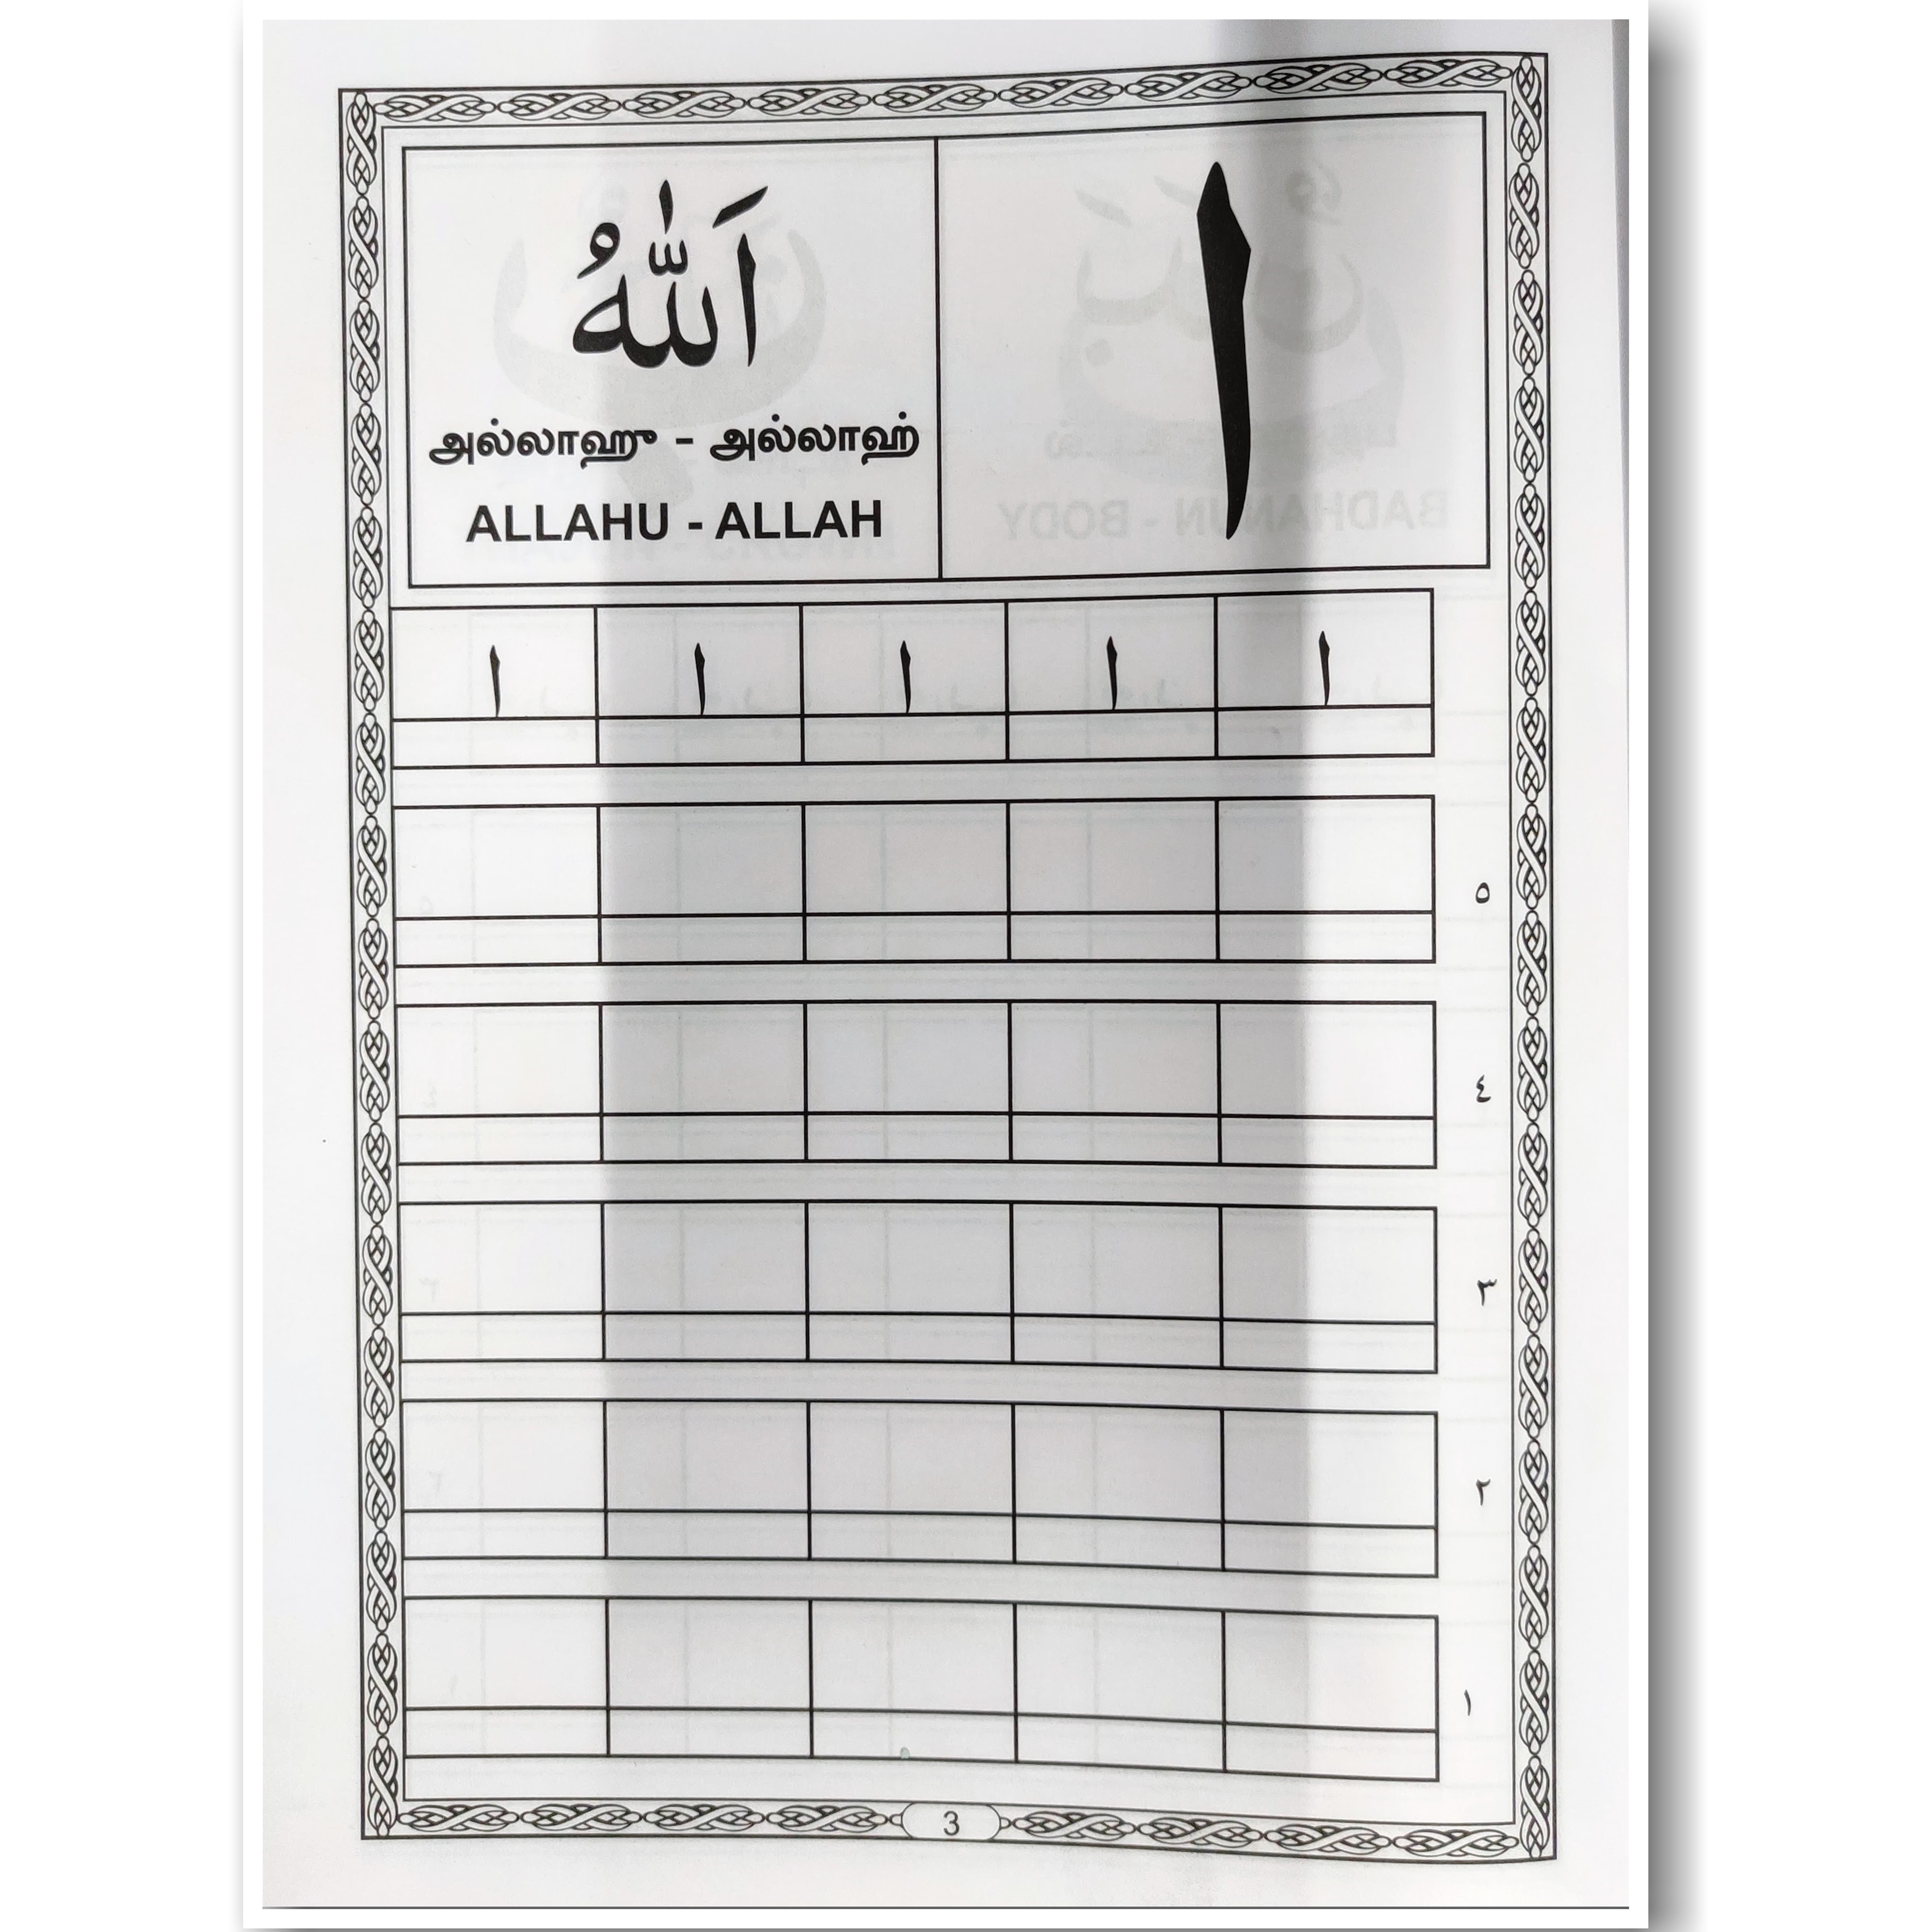 ا
اَللّٰهُ
அல்லாஹு - அல்லாஹ்
ALLAHU - ALLAH
ا ا ا ا ا
٥
٤
٣
٢
١
3